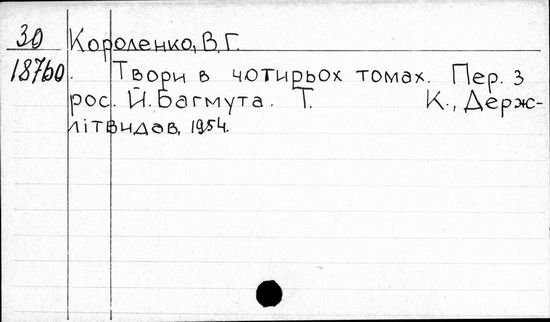 30 Короленко, В.Г.
18760. Твори в чотирьох томах. Пер. з
рос. Й. Багмута. Т. К., Держ-
літвидав, 1954.